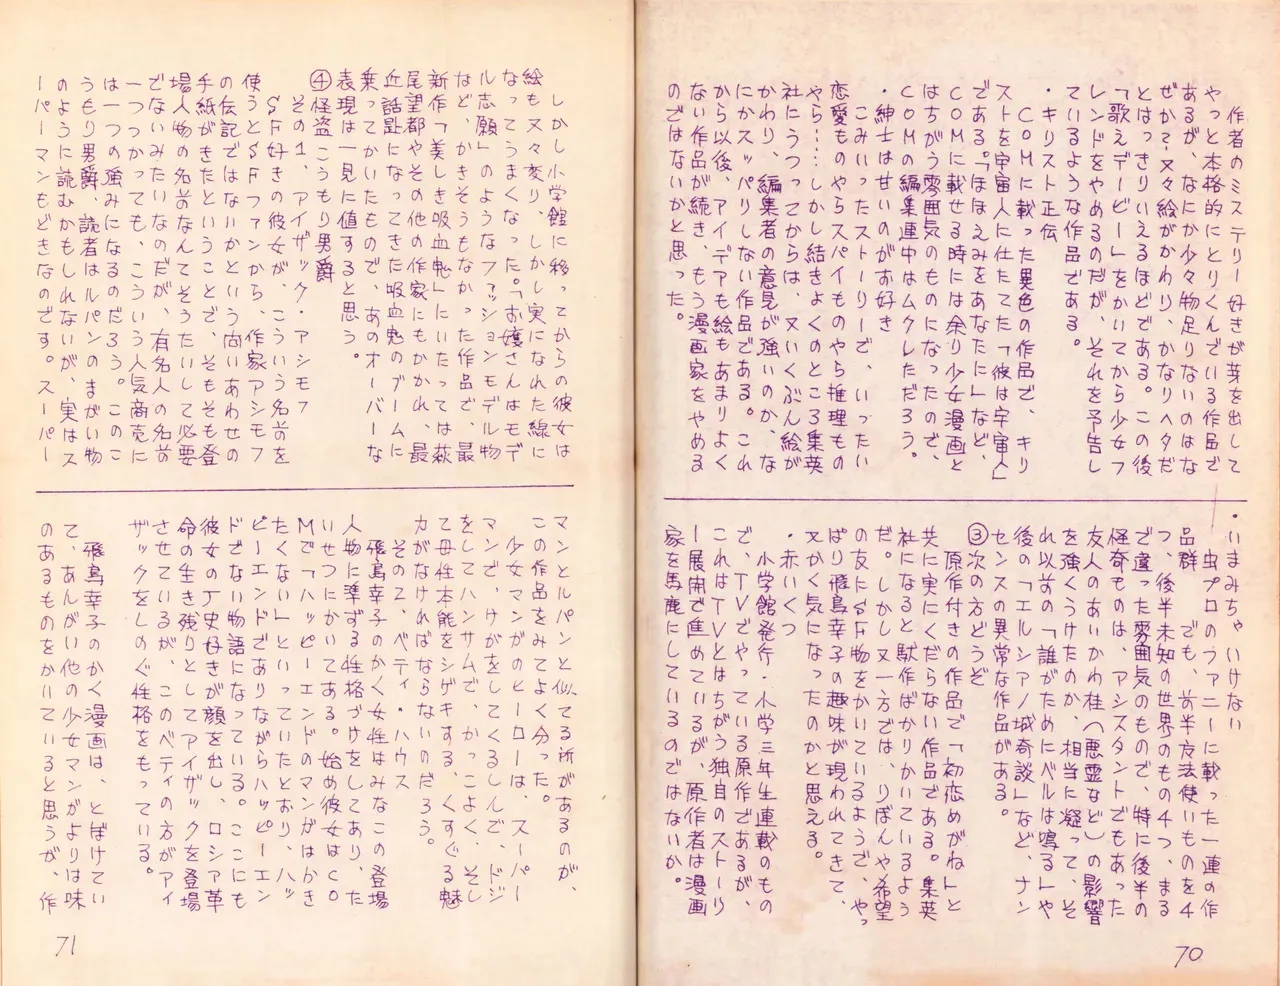 作者のミステリー好きが芽を出して
やっと本格的にとりくんでいる作品で
あるが、なにか少々物足りないのはな
ぜか？又々絵がかわり、かなりヘタだ
とはっきりいえるほどである。この後
「歌えデービー」をかいてから少女フ
レンドをやめるのだが、それを予告し
ているような作品である。
・キリスト正伝
COMに載った異色の作品で、キリ
ストを宇宙人に仕たてた「彼は宇宙人」
である。「ほほえみをあなたに」など、
COMに載せる時には余り少女漫画と
はちがう雰囲気のものになったので、
COMの編集連中はムクレただろう。
・紳士は甘いのがお好き
こみいったストーリーで、いったい
恋愛ものやらスパイものやら推理もの
やら……しかし結きょくのところ集英
社にうつってからは、又いくぶん絵が
かわり、編集者の意見が強いのか、な
にかスッパリしない作品である。これ
から以後、アイデアも絵もあまりよく
ない作品が続き、もう漫画家をやめる
のではないかと思った。
・いまみちゃいけない
虫プロのファニーに載った一連の作
品群　でも、前半友法使いものを4
つ、後半未知の世界のもの4つ、まる
で違った雰囲気のもので、特に後半の
怪奇ものは、アシスタントでもあった
友人のあいかわ桂（悪霊など）の影響
を強くうけたのか、相当に凝って、そ
れ以前の「誰がためにベルは鳴る」や
後の「エルシアノ城奇談」など、ナン
センスの異常な作品がある。
③次の方どうぞ
原作付きの作品で「初恋めがね」と
共に実にくだらない作品である。集英
社になると駄作ばかりかいているよう
だ。しかし又一方では、りぼんや希望
の友にSF物をかいているようで、やっ
ぱり飛鳥幸子の趣味が現われてきて、
又かく気になったのかと思える。
・赤いくつ
小学館発行・小学三年生連載のもの
で、TVでやっている原作であるが、
これはTVとはちがう独自のストーリ
ー展開で進めているが、原作者は漫画
家を馬鹿にしているのではないか。
70
しかし小学館に移ってからの彼女は
絵も又々変り、しかし実になれた線に
なってうまくなった。「お嬢さんはモデ
ル志願」のようなファッションモデル物
など、かきそうもなかった作品で、最
新作「美しき吸血鬼」にいたっては萩
尾望都やその他の作家にもかかれ、最
近話題になってきた吸血鬼のブームに
乗ってかいたもので、あのオーバーな
表現は一見に値すると思う。
④怪盗こうもり男爵
その1、アイザック・アシモフ
SF好きの彼女が、こういう名前を
使うとSFファンから、作家アシモフ
の伝記ではないかという問いあわせの
手紙がきたということで、そもそも登
場人物の名前なんてそうたいして必要
でないみたいなのだが、有名人の名前
一つつかっても、こういう人気商売に
は一つの強みになるのだろう。このこ
うもり男爵、読者はルパンのまがい物
のように読むかもしれないが、実はス
ーパーマンもどきなのです。スーパー
マンとルパンと似てる所があるのが、
この作品をみてよく分った。
少女マンガのヒーローは、スーパー
マンで、けがをしてくるしんで、ドジ
をしてハンサムで、かっこよく、そし
て母性本能をシゲキする、くすぐる魅
力がなければならないのだろう。
その2、ベティ・ハウス
飛鳥幸子のかく女性はみなこの登場
人物に準ずる性格づけをしてあり、た
いせつにかいてある。始め彼女はCO
Mで「ハッピーエンドのマンガはかき
たくない」といっていたとおり、ハッ
ピーエンドでありながらハッピーエン
ドでない物語になっている。ここにも
彼女の丁史好きが顔を出し、ロシア革
命の生き残りとしてアイザックを登場
させているが、このベティの方がアイ
ザックをしのぐ性格をもっている。
飛鳥幸子のかく漫画は、とぼけてい
て、あんがい他の少女マンガよりは味
のあるものをかいていると思うが、作
71